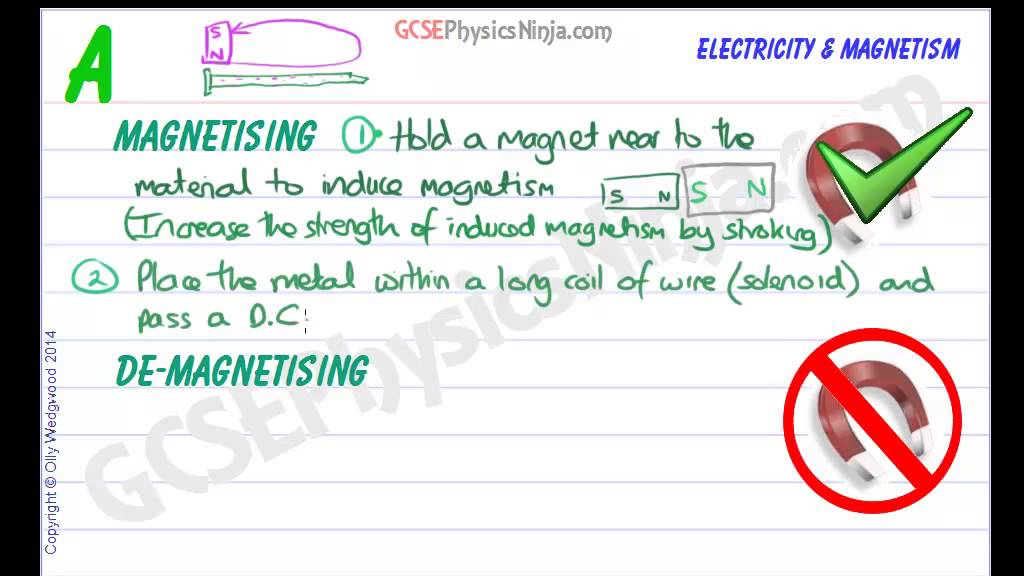 A
S
N
GCSEPhysicsNinja.com
ELECTRICITY & MAGNETISM
MAGNETISING ① Hold a magnet near to the
material to induce magnetism S N S N
(Increase the strength of induced magnetism by stroking)
② Place the metal within a long coil of wire (solenoid) and
pass a D.C
DE-MAGNETISING
Copyright © Olly Wedgwood 2014
GCSEPhysicsNinja.com